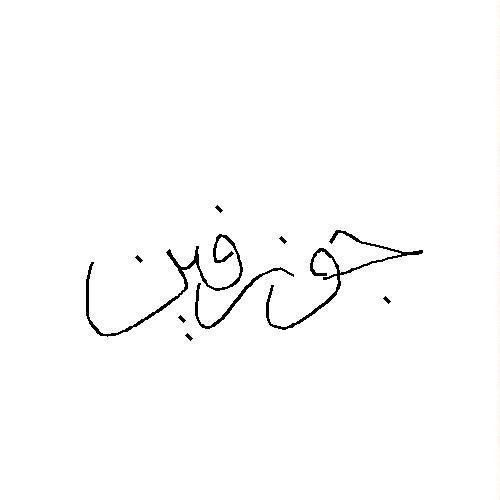 جوزفين